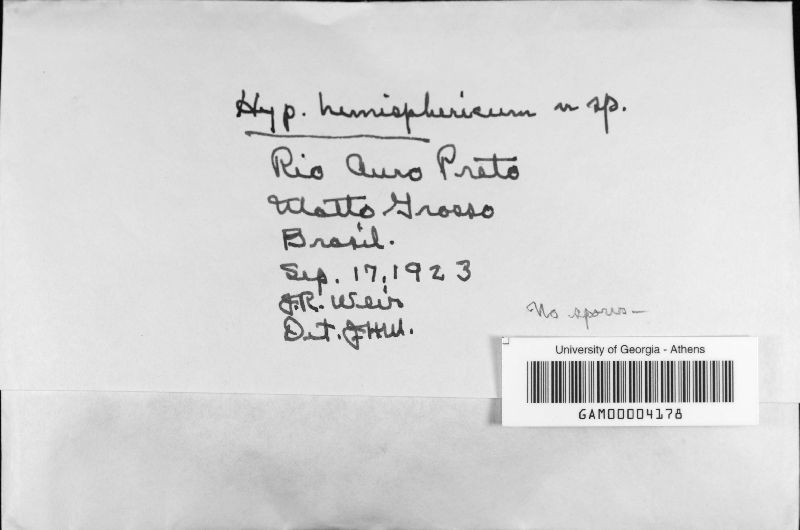 Hyp. hemisphericum n sp.
Rio Auro Preto
Matto Grosso
Brasil.
Sep. 17, 1923
J.R. Weir
Det. JHM.
No spores—
University of Georgia - Athens
GAM00004178